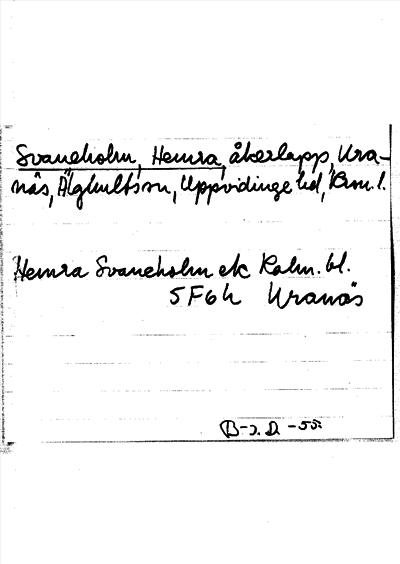 Svaneholm, Hemra, åkerlapp, Ura-
näs, Älghults sn, Uppvidinge hd, Kron. l.
Hemra Svaneholm ek Kalm. bl.
5F6h Uranäs
B-J. D. -55.